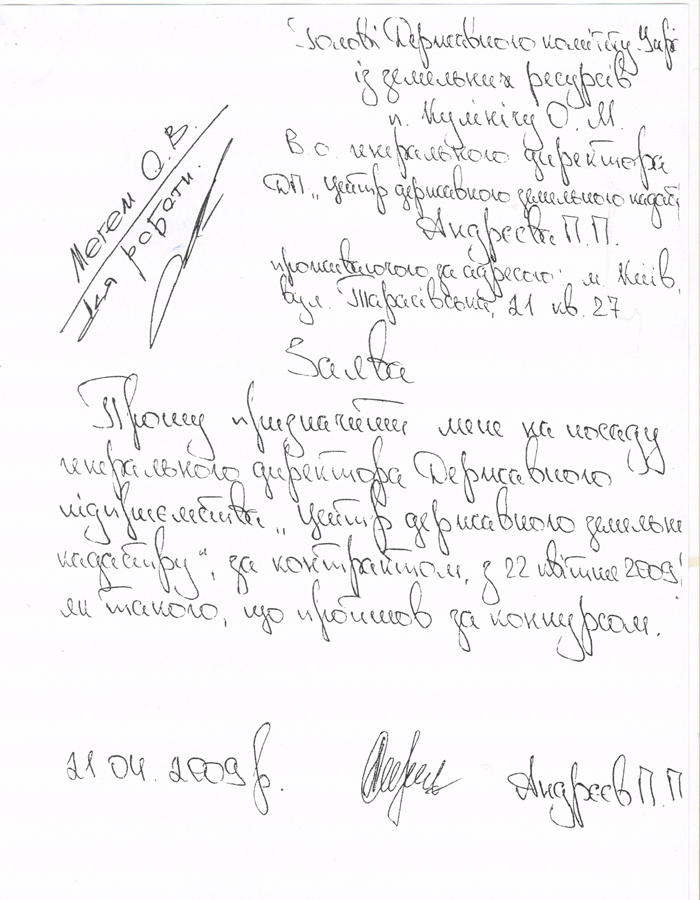 Голові Державного комітету Укр
із земельних ресурсів
п. Кулінічу О. М.
В о. генерального директора
ДП „Центр державного земельного кадаст
Андрєєва П.П.
проживаючого за адресою: м. Київ,
вул. Тарасівська, 21 кв. 27
О. В.
для роботи.
Заява
Прошу призначити мене на посаду
генерального директора Державного
підприємства „Центр державного земельн
кадастру“, за контрактом, з 22 квітня 2009
як такого, що пройшов за конкурсом.
21 04. 2009 р.
Андрєєв П. П